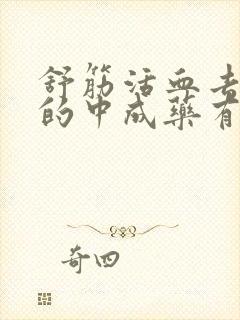 舒筋活血去
的中成药有
奇四